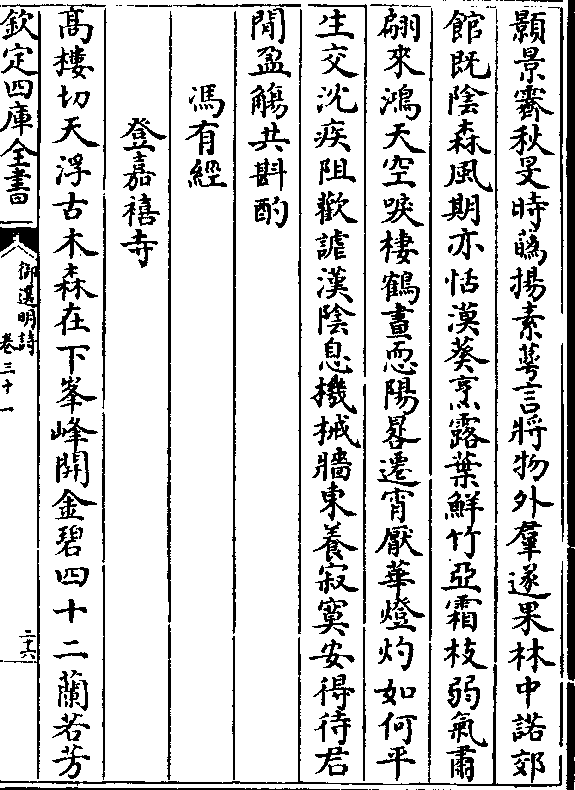 顥景霽秋旻時鷁揚素萼言將物外羣遂果林中諾郊
館既陰森風期亦恬漠葵烹露葉鮮竹亞霜枝弱氣肅
翩來鴻天空唳棲鶴晝悤陽晷遷宵厭華燈灼如何平
生交沈疾阻歡謔漢陰息機械牆東養寂寞安得待君
閒盈觴共斟酌
馮有經
登嘉禧寺
髙樓切天浮古木森在下峯峰開金碧四十二蘭若芳
欽定四庫全書
御選明詩
卷三十一
二十六